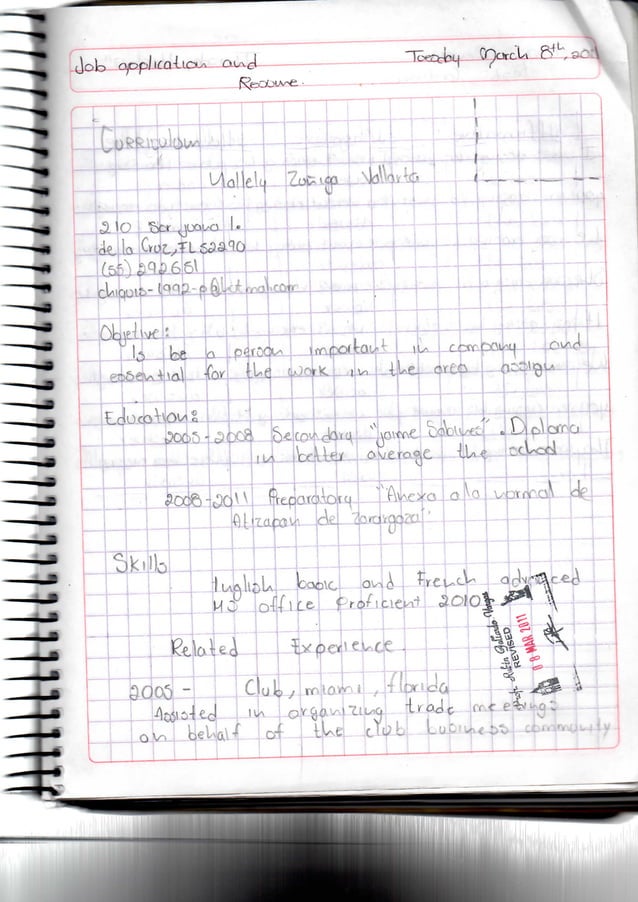 Job application and Tuesday March 8th, 201
Resume.
Curriculum
Yallely Zuñiga Vallarta
210 Sor juana I.
de la Cruz, FL 52290
(55) 292651
chiquis-1992-p@hotmail.com
Objetive:
Is be a person important in company and
essential for the work in the area assign
Education:
2005-2008 Secondary "jaime Sabines". Diploma
in better average the school
2008-2011 Preparatory "Anexa a la normal de
Atizapan de Zaragoza".
Skills
English basic and French advanced
MS office Proficient 2010
Related Experience.
2005 - Club, miami, florida
Assisted in organizing trade meetings
on behalf of the club business community
REVISED
08 MAR 2011